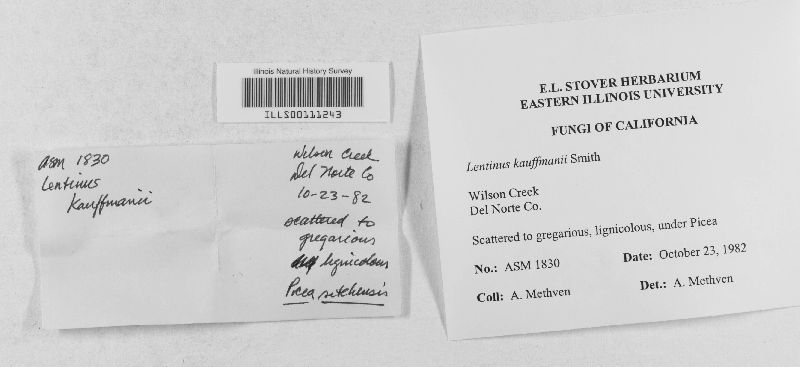 Illinois Natural History Survey
ILLS00111243
ASM 1830
Lentinus
Kauffmanii
Wilson Creek
Del Norte Co
10-23-82
scattered to
gregarious
lignicolous
Picea sitchensis
E.L. STOVER HERBARIUM
EASTERN ILLINOIS UNIVERSITY
FUNGI OF CALIFORNIA
Lentinus kauffmanii Smith
Wilson Creek
Del Norte Co.
Scattered to gregarious, lignicolous, under Picea
No.: ASM 1830 Date: October 23, 1982
Coll: A. Methven Det.: A. Methven